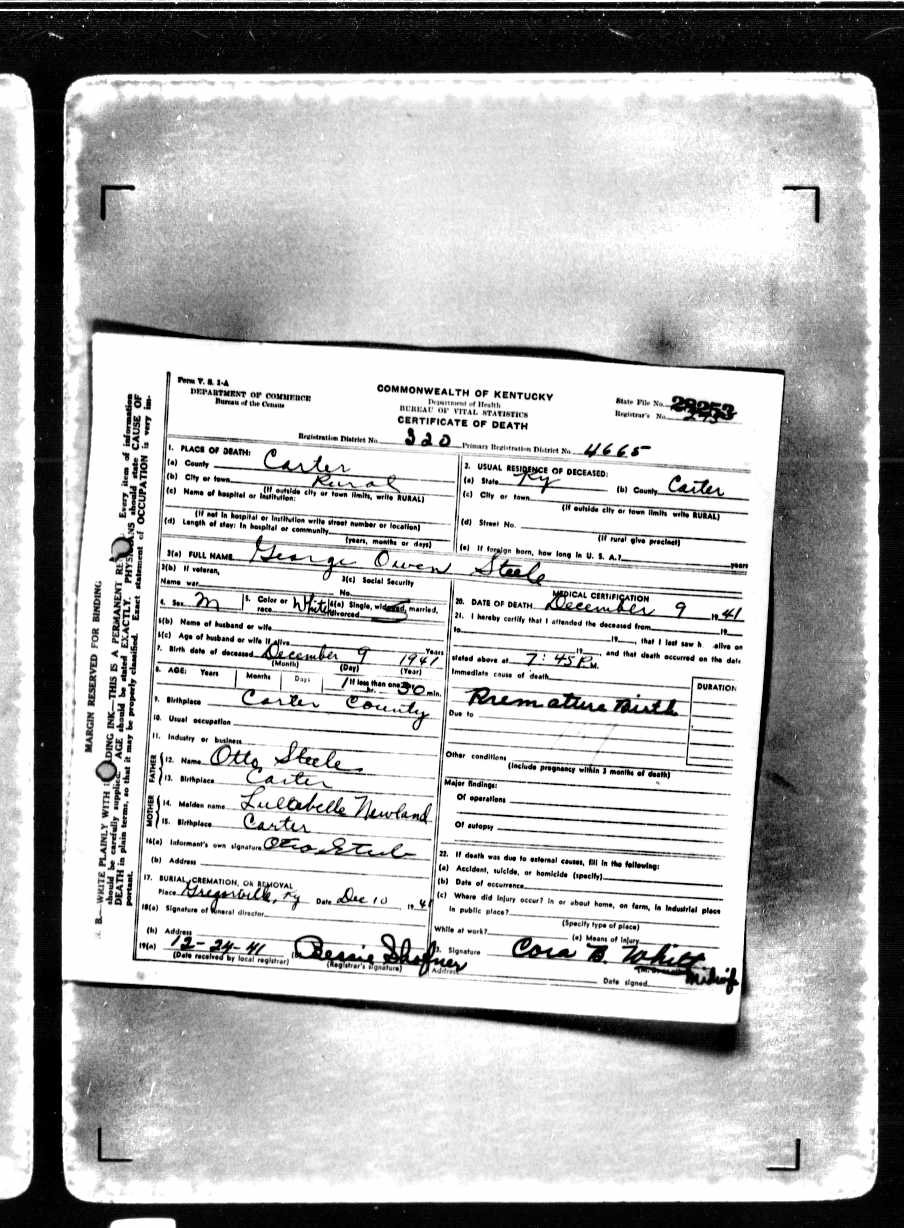 MARGIN RESERVED FOR BINDING
B.—WRITE PLAINLY WITH DING INK—THIS IS A PERMANENT RE Every item of information
should be carefully supplied. AGE should be stated EXACTLY. PHYSI NS should state CAUSE OF
DEATH in plain terms, so that it may be properly classified. Exact statement of OCCUPATION is very im-
portant.
Form V. S. 1-A
DEPARTMENT OF COMMERCE
Bureau of the Census
COMMONWEALTH OF KENTUCKY
Department of Health
BUREAU OF VITAL STATISTICS
CERTIFICATE OF DEATH
State File No. 28253
Registrar's No.
Registration District No. 320 Primary Registration District No. 4665
1. PLACE OF DEATH:
(a) County Carter
(b) City or town Rural
(If outside city or town limits, write RURAL)
(c) Name of hospital or institution:
(If not in hospital or institution write street number or location)
(d) Length of stay: In hospital or community
(years, months or days)
2. USUAL RESIDENCE OF DECEASED:
(a) State Ky (b) County Carter
(c) City or town
(If outside city or town limits write RURAL)
(d) Street No.
(If rural give precinct)
(e) If foreign born, how long in U. S. A.? years
3(a) FULL NAME George Owen Steele
3(b) If veteran,
Name war
3(c) Social Security
No.
4. Sex M 5. Color or race White 6(a) Single, widowed, married, divorced S
6(b) Name of husband or wife
6(c) Age of husband or wife if alive Years
7. Birth date of deceased December 9 1941
(Month) (Day) (Year)
8. AGE: Years Months Days If less than one day
1 hr. 30 min.
9. Birthplace Carter County
10. Usual occupation
11. Industry or business
FATHER
12. Name Otto Steele
13. Birthplace Carter
MOTHER
14. Maiden name Lullabelle Newland
15. Birthplace Carter
16(a) Informant's own signature Otto Steele
(b) Address
17. BURIAL, CREMATION, OR REMOVAL
Place Gregorville, Ky Date Dec 10 1941
18(a) Signature of funeral director
(b) Address
19(a) 12-24-41 (b) Bessie Shofner
(Date received by local registrar) (Registrar's signature)
MEDICAL CERTIFICATION
20. DATE OF DEATH December 9 1941
21. I hereby certify that I attended the deceased from 19
to 19, that I last saw h alive on
19, and that death occurred on the date
stated above at 7:45 P.M.
Immediate cause of death
DURATION
Premature Birth
Due to
Other conditions
(Include pregnancy within 3 months of death)
Major findings:
Of operations
Of autopsy
22. If death was due to external causes, fill in the following:
(a) Accident, suicide, or homicide (specify)
(b) Date of occurrence
(c) Where did injury occur? in or about home, on farm, in industrial place
in public place?
(Specify type of place)
While at work? (e) Means of injury
23. Signature Cora B. Whitt
Midwife
Address Date signed